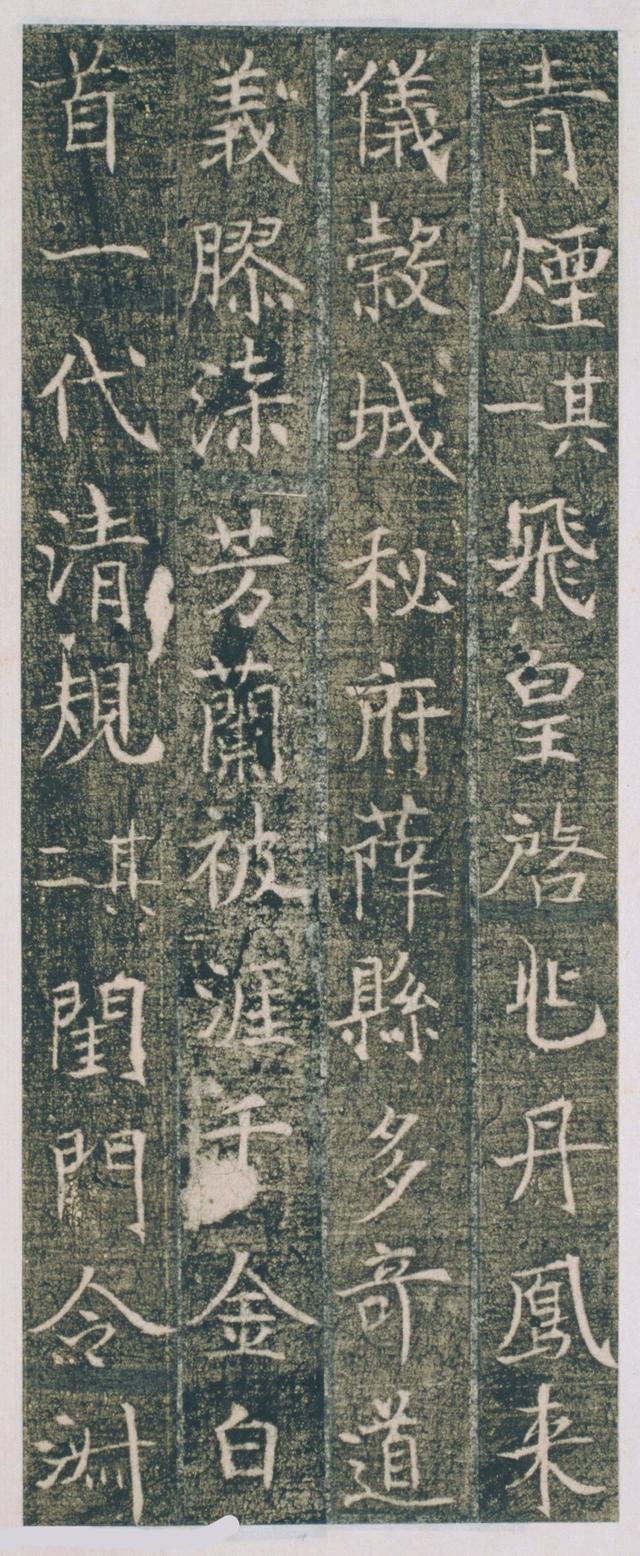 青煙其一飛皇啓兆丹鳳来
儀穀城秘府薛縣多奇道
義膠漆芳蘭被涯千金白
首一代清規其二閨門令淑